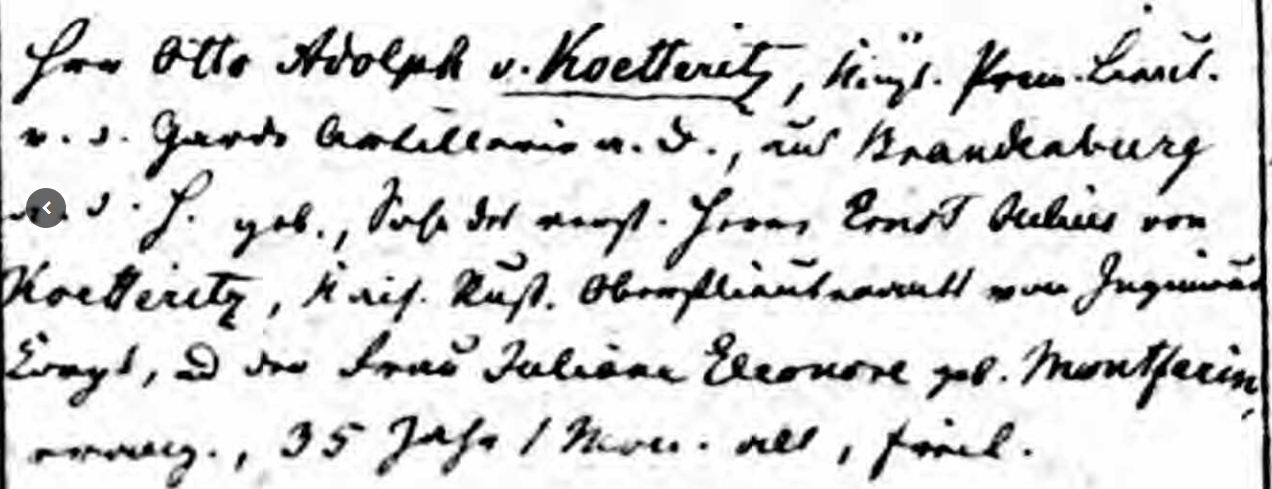 Herr Otto Adolph v. Koetteritz, Königl. Prem. Lieut.
v. d. Garde Artillerie a. D., aus Brandenburg
a. d. H. geb., Sohn des verst. Herrn Ernst Julius von
Koetteritz, Kais. Russ. Oberstlieutenant vom Ingenieur
Corps, u der Frau Juliane Eleonore geb. Montfarin,
evang., 35 Jahr 1 Mon. alt,